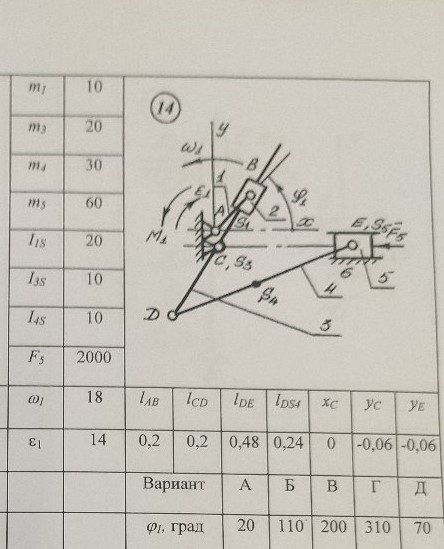 m1 10
m3 20
m4 30
m5 60
I1S 20
I3S 10
I4S 10
F5 2000
ω1 18
ε1 14
14
y
ω1
B
1
ε1
A
S1
φ1
2
x
M1
C, S3
E, S5
F̄5
6
5
4
S4
D
3
lAB lCD lDE lDS4 xC yC yE
0,2 0,2 0,48 0,24 0 -0,06 -0,06
Вариант А Б В Г Д
φ1, град 20 110 200 310 70